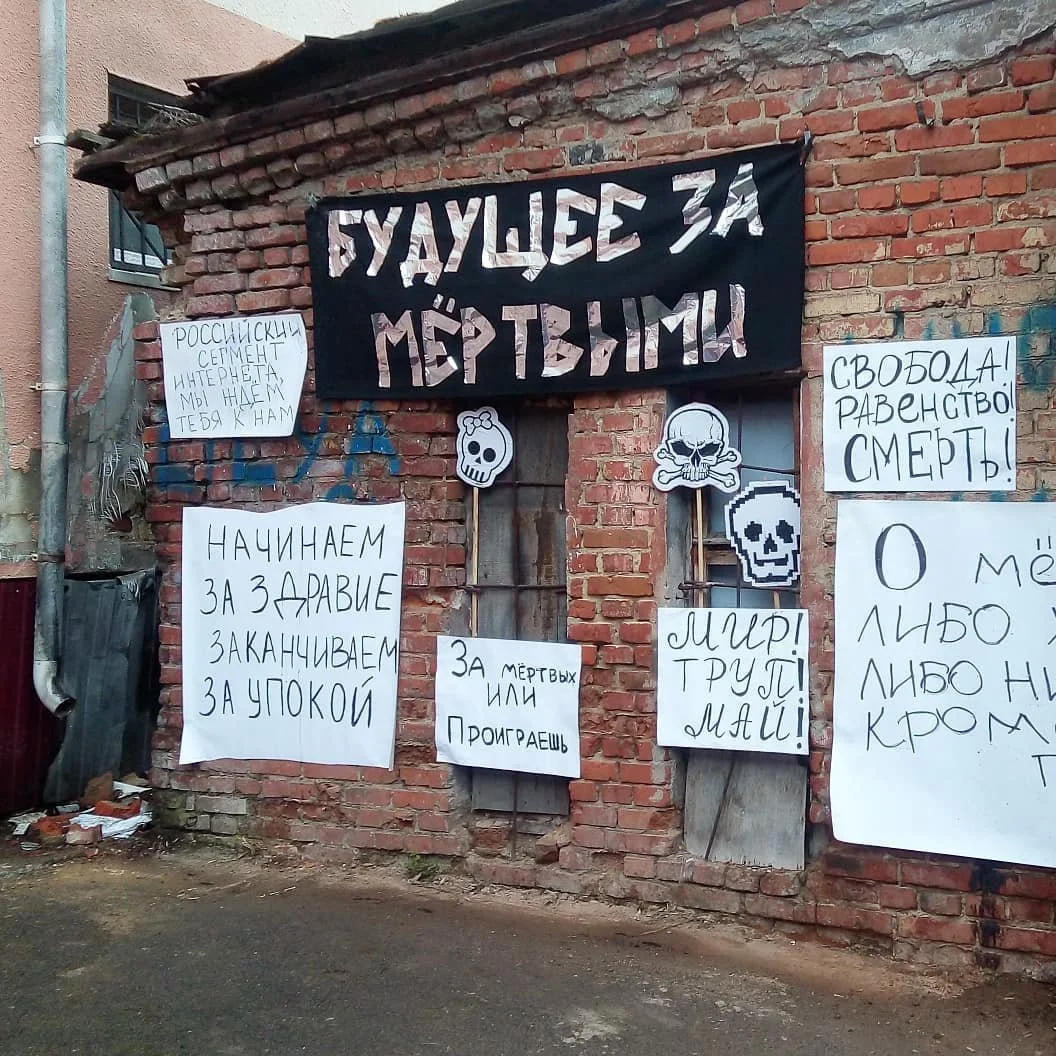 БУДУЩЕЕ ЗА
МЁРТВЫМИ
РОССИЙСКИЙ
СЕГМЕНТ
ИНТЕРНЕТА,
МЫ ЖДЁМ
ТЕБЯ К НАМ
СВОБОДА!
РАВЕНСТВО!
СМЕРТЬ!
НАЧИНАЕМ
ЗА ЗДРАВИЕ
ЗАКАНЧИВАЕМ
ЗА УПОКОЙ
За мёртвых
ИЛИ
Проиграешь
МИР!
ТРУП!
МАЙ!
О
ЛИБО
ЛИБО